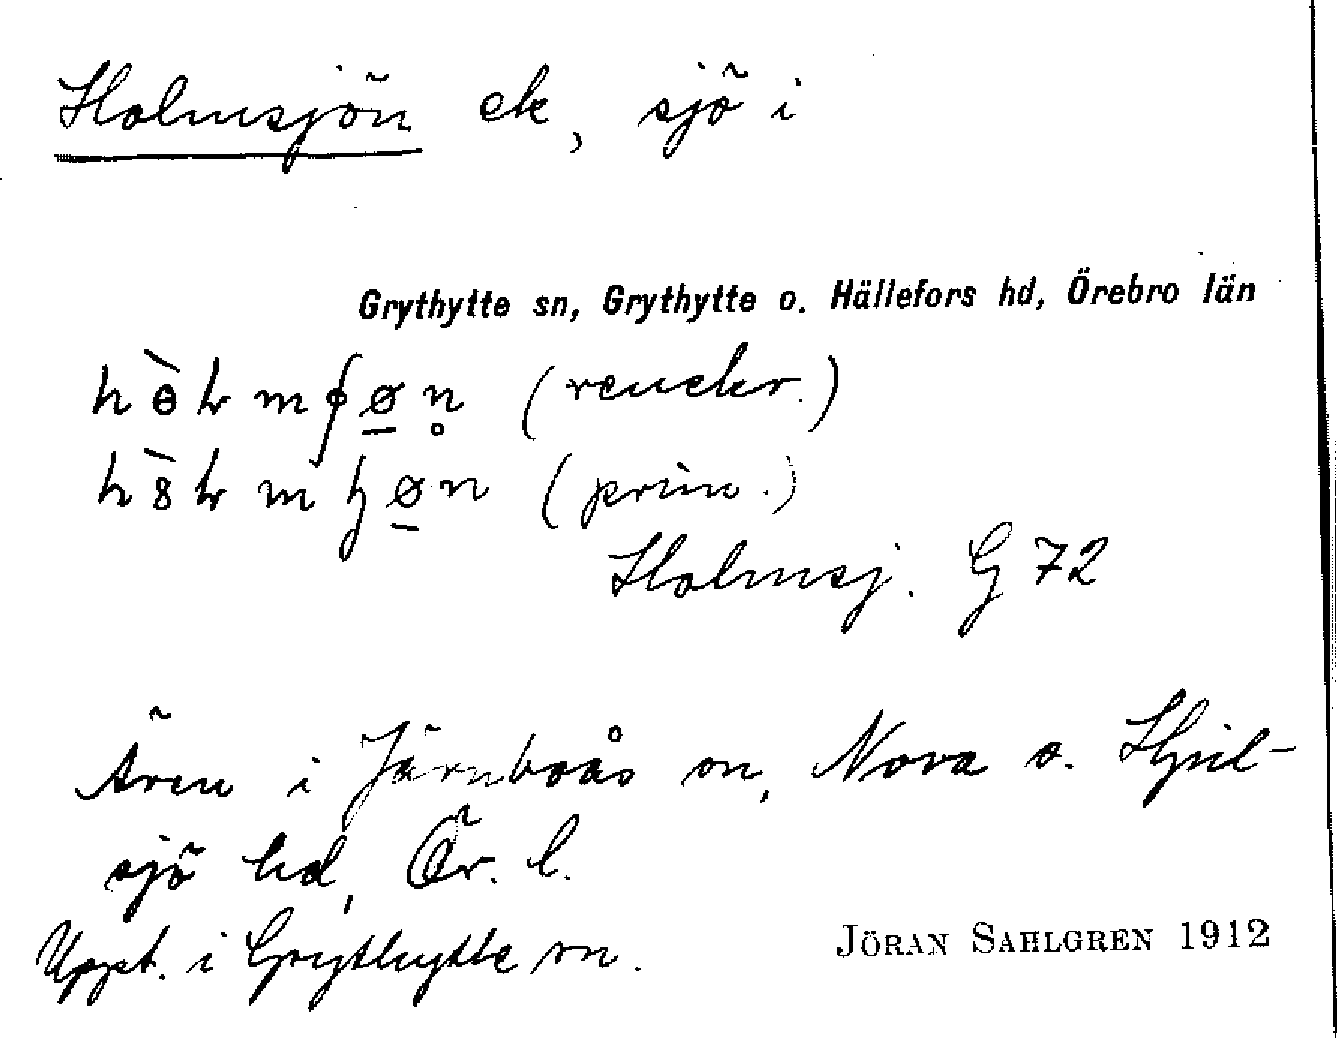 Holmsjön ek, sjö i
Grythytte sn, Grythytte o. Hällefors hd, Örebro län
(reucker.)
(prim.)
Holmsj. G 72
Även i Järnboås sn, Nora o. Hjul-
sjö hd, Ör. l.
Uppt. i Grythytte sn.
JÖRAN SAHLGREN 1912